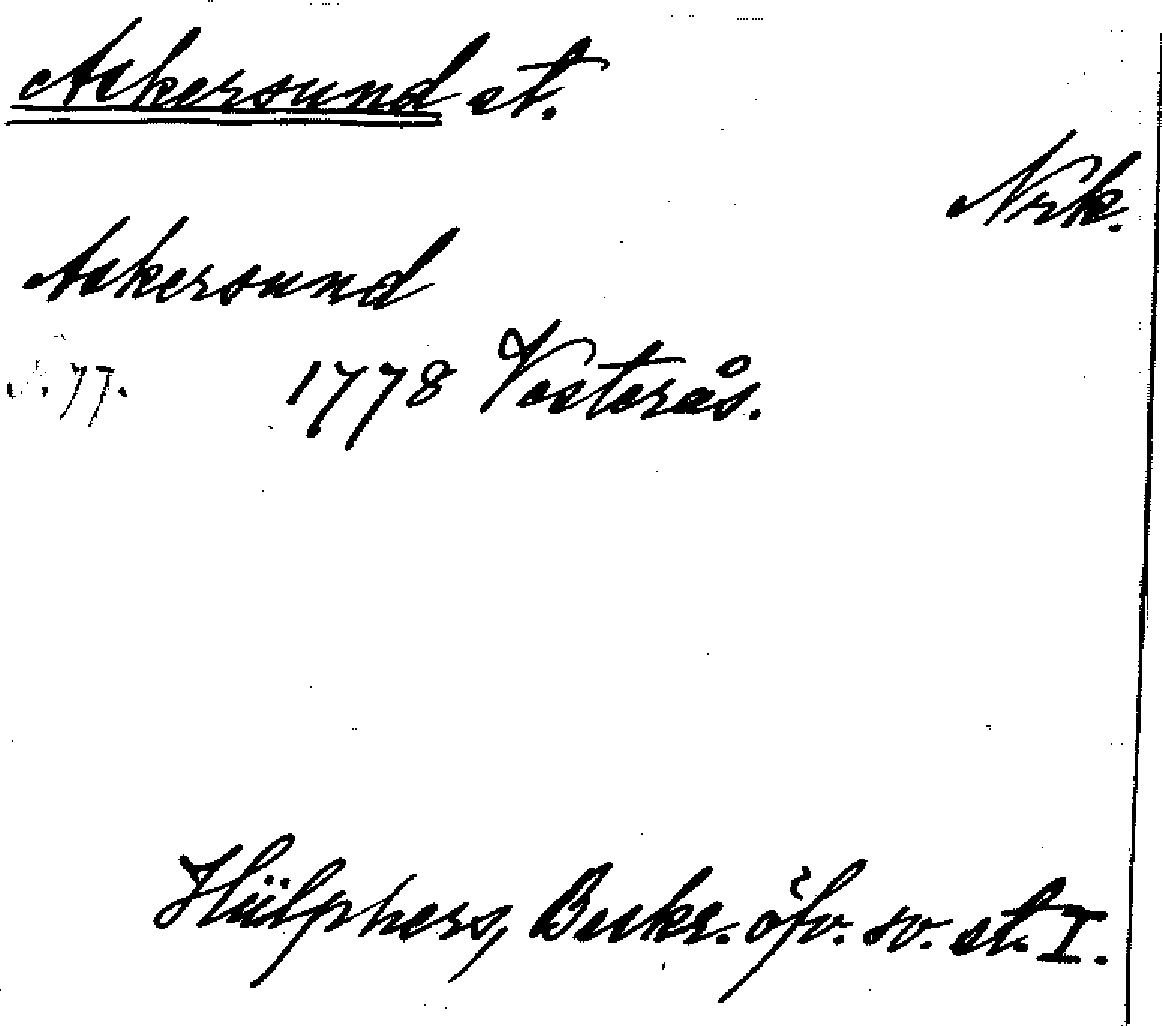 Askersund st.
Nrk.
Askersund
s. 77. 1778 Vesterås.
Hülphers, Beskr. öfv. sv. st. I.